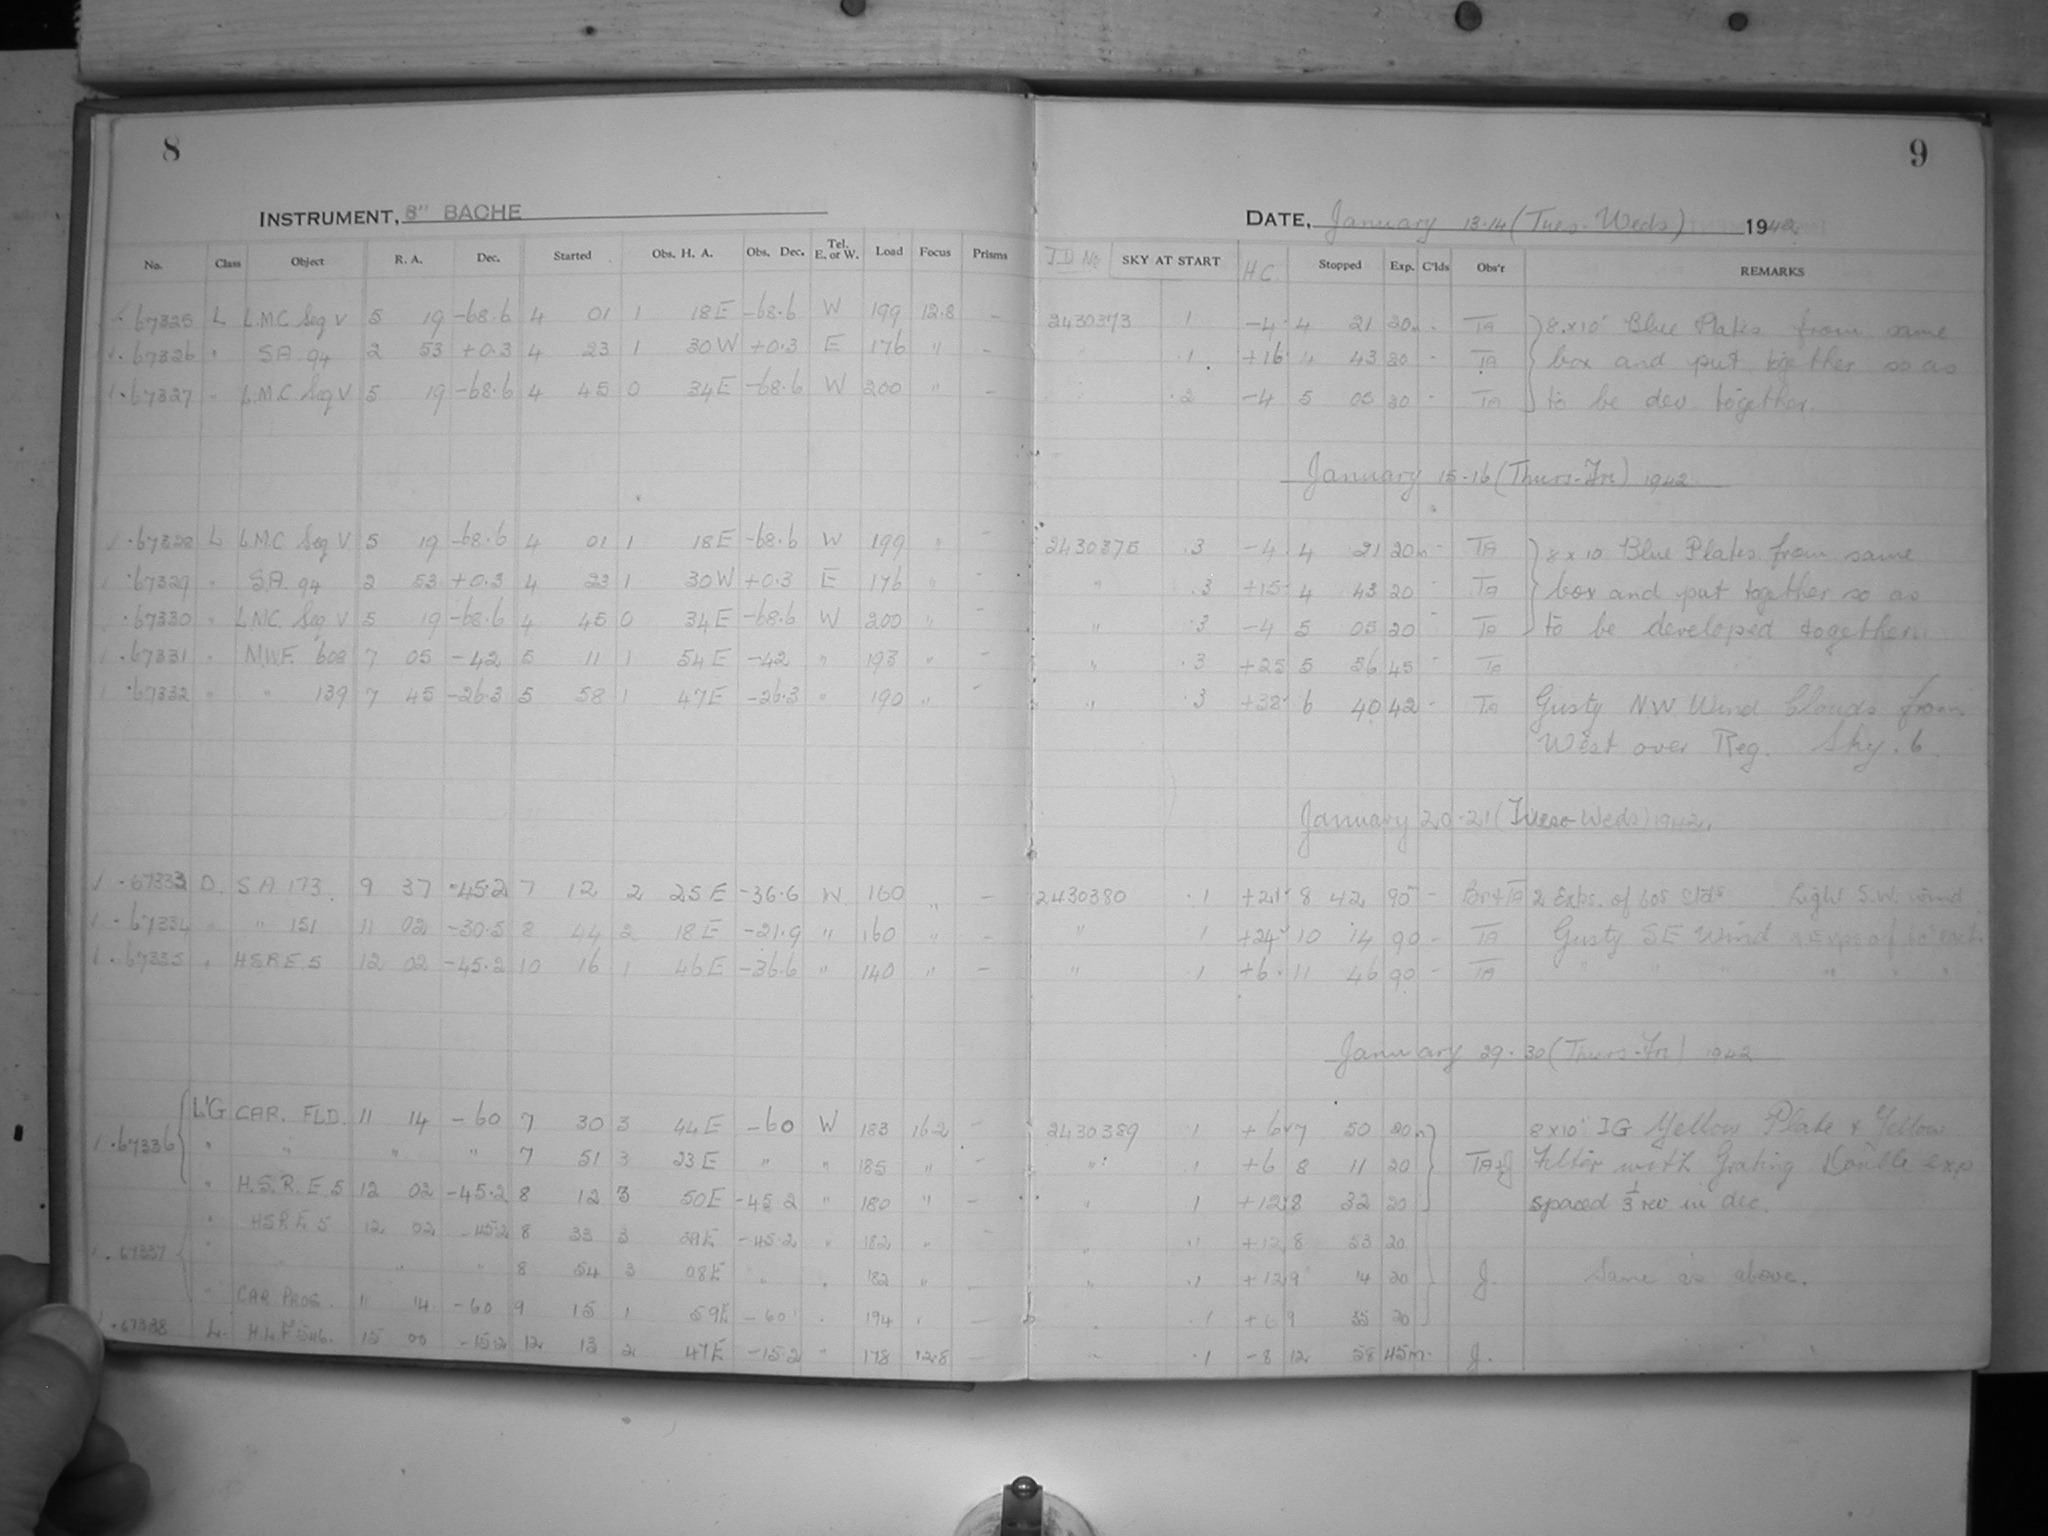 8
INSTRUMENT, 8" BACHE
No. Class Object R. A. Dec. Started Obs. H. A. Obs. Dec. Tel. E. or W. Load Focus Prisms
67325 L L.M.C Seq V 5 19 -68.6 4 01 1 18E -68.6 W 199 12.8 -
67326 " S.A. 94 2 53 +0.3 4 23 1 30W +0.3 E 176 " -
67327 " L.M.C Seq V 5 19 -68.6 4 45 0 34E -68.6 W 200 " -
67328 L L.M.C Seq V 5 19 -68.6 4 01 1 18E -68.6 W 199 " -
67329 " S.A. 94 2 53 +0.3 4 23 1 30W +0.3 E 176 " -
67330 " L.M.C. Seq V 5 19 -68.6 4 45 0 34E -68.6 W 200 " -
67331 " M.W.F. 608 7 05 -42 5 11 1 54E -42 " 193 " -
67332 " " 139 7 45 -26.3 5 58 1 47E -26.3 " 190 " -
67333 D. S A 173 9 37 -45.2 7 12 2 25E -36.6 W 160 " -
67334 " " 151 11 02 -30.5 8 44 2 18E -21.9 " 160 " -
67335 " H.S.R.E 5 12 02 -45.2 10 16 1 46E -36.6 " 140 " -
L'G CAR. FLD. 11 14 -60 7 30 3 44E -60 W 183 16.2 -
67336 " " " " 7 51 3 23E " " 185 " -
" H.S.R.E. 5 12 02 -45.2 8 12 3 50E -45.2 " 180 " -
" HSRE 5 12 02 -45.2 8 33 3 29E -45.2 " 182 " -
67337 " " " " 8 54 3 08E " " 182 "
" CAR PROG. 11 14 -60 9 15 1 59E -60 " 194 " -
67338 L. H.L.F 546. 15 00 -15.2 12 13 2 47E -15.2 " 178 12.8 -
9
DATE, January 13.14 (Tues-Weds) 1942
J.D No SKY AT START H.C. Stopped Exp. C'lds Obs'r REMARKS
2430373 1 -4 4 21 20m - TA 8x10" Blue Plates from same
.1 +16 4 43 20 - TA box and put together so as
.2 -4 5 05 20 - TA to be dev. together.
January 15-16 (Thurs-Fri) 1942
2430375 .3 -4 4 21 20m - TA 8x10 Blue Plates from same
" .3 +15 4 43 20 - TA box and put together so as
" .3 -4 5 05 20 - TA to be developed together.
" .3 +25 5 56 45 - TA
" .3 +32 6 40 42 - TA Gusty NW Wind Clouds from
West over Reg. Sky .6
January 20-21 (Tues-Weds) 1942.
2430380 .1 +21 8 42 90m - Br+TA 2 Exps. of 60s Light S.W. wind
" 1 +24 10 14 90 - TA Gusty SE Wind 2 Exps of 60s each
" .1 +6 11 46 90 - TA " " " " " "
January 29.30 (Thurs-Fri) 1942
2430389 .1 +6 7 50 20m 8x10" IG Yellow Plate & Yellow
" .1 +6 8 11 20 TA+J Filter with Grating Double exp
" 1 +12 8 32 20 spaced 1/3 rev in dec.
" .1 +12 8 53 20
" .1 +12 9 14 20 J. Same as above.
" .1 +6 9 35 20
" .1 -8 12 58 45m. J.